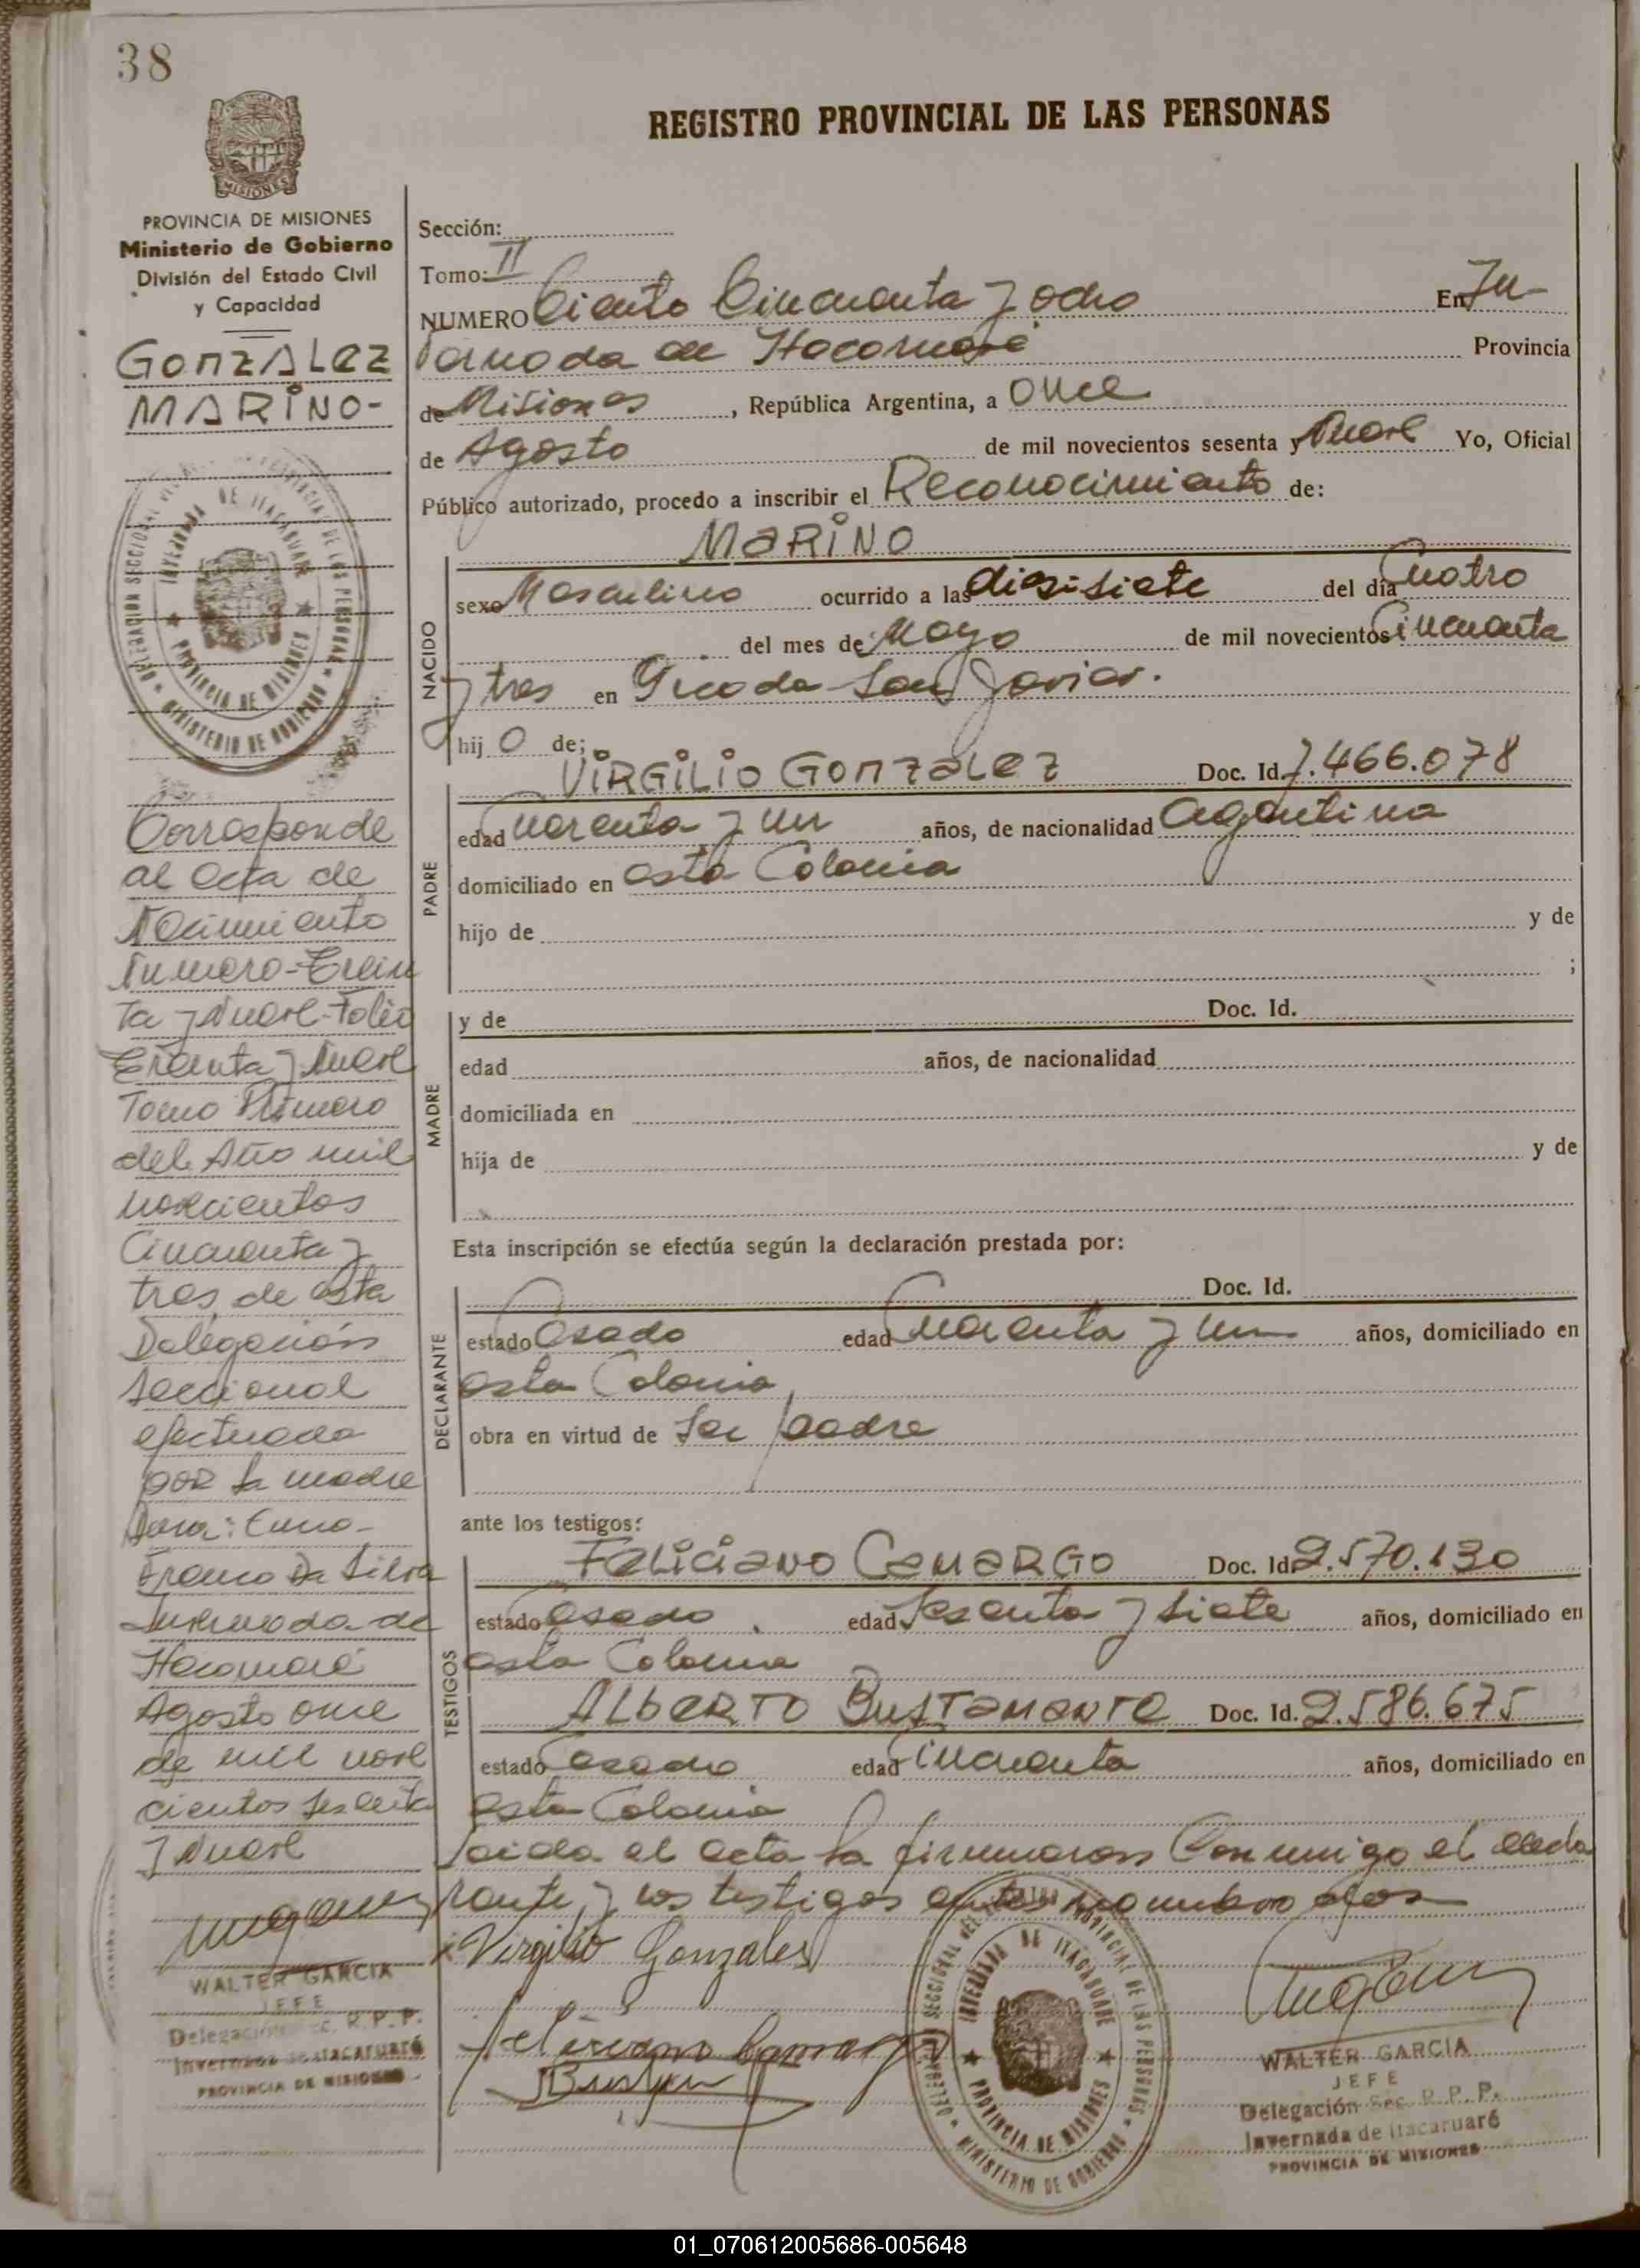 38
REGISTRO PROVINCIAL DE LAS PERSONAS
MISIONES
PROVINCIA DE MISIONES
Ministerio de Gobierno
División del Estado Civil
y Capacidad
GONZALEZ
MARINO-
Corresponde
al acta de
Nacimiento
Numero-Trein
ta y Nueve-Folio
Treinta y Nueve
Tomo Primero
del Año mil
novecientos
Cincuenta y
tres de esta
Delegación
Seccional
efectuada
por la madre
Franco Da Silva
Invernada de
Itacaruaré
Agosto once
de mil nove
cientos sesenta
y Nueve
WALTER GARCIA
JEFE
Delegación Sec. R.P.P.
Invernada de Itacaruaré
PROVINCIA DE MISIONES
Sección:
Tomo: II
NUMERO Ciento Cincuenta y ocho En In-
vernada de Itacaruaré Provincia
de Misiones, República Argentina, a Once
de Agosto de mil novecientos sesenta y Nueve Yo, Oficial
Público autorizado, procedo a inscribir el Reconocimiento de:
MARINO
NACIDO
sexo Masculino ocurrido a las diesisiete del día Cuatro
del mes de Mayo de mil novecientos Cincuenta
y tres en Picada San Javier.
hijo de;
PADRE
VIRGILIO GONZALEZ Doc. Id. 7.466.078
edad Cuarenta y un años, de nacionalidad Argentina
domiciliado en esta Colonia
hijo de y de
;
MADRE
y de Doc. Id.
edad años, de nacionalidad
domiciliada en
hija de y de
Esta inscripción se efectúa según la declaración prestada por:
DECLARANTE
Doc. Id.
estado Casado edad Cuarenta y un años, domiciliado en
esta Colonia
obra en virtud de Ser padre
ante los testigos:
TESTIGOS
FELICIANO CAMARGO Doc. Id. 2.570.130
estado Casado edad Sesenta y siete años, domiciliado en
esta Colonia
ALBERTO BUSTAMANTE Doc. Id. 2.586.675
estado Casado edad Cincuenta años, domiciliado en
esta Colonia
Leida el acta la firmaron Conmigo el decla
rante y los testigos antes nombrados
Virgilio Gonzales
Feliciano Camargo
DELEGACION SECCIONAL DEL REGISTRO PROVINCIAL DE LAS PERSONAS
INVERNADA DE ITACARUARE
PROVINCIA DE MISIONES
MINISTERIO DE GOBIERNO
WALTER GARCIA
JEFE
Delegación Sec. R.P.P.
Invernada de Itacaruaré
PROVINCIA DE MISIONES
01_070612005686-005648